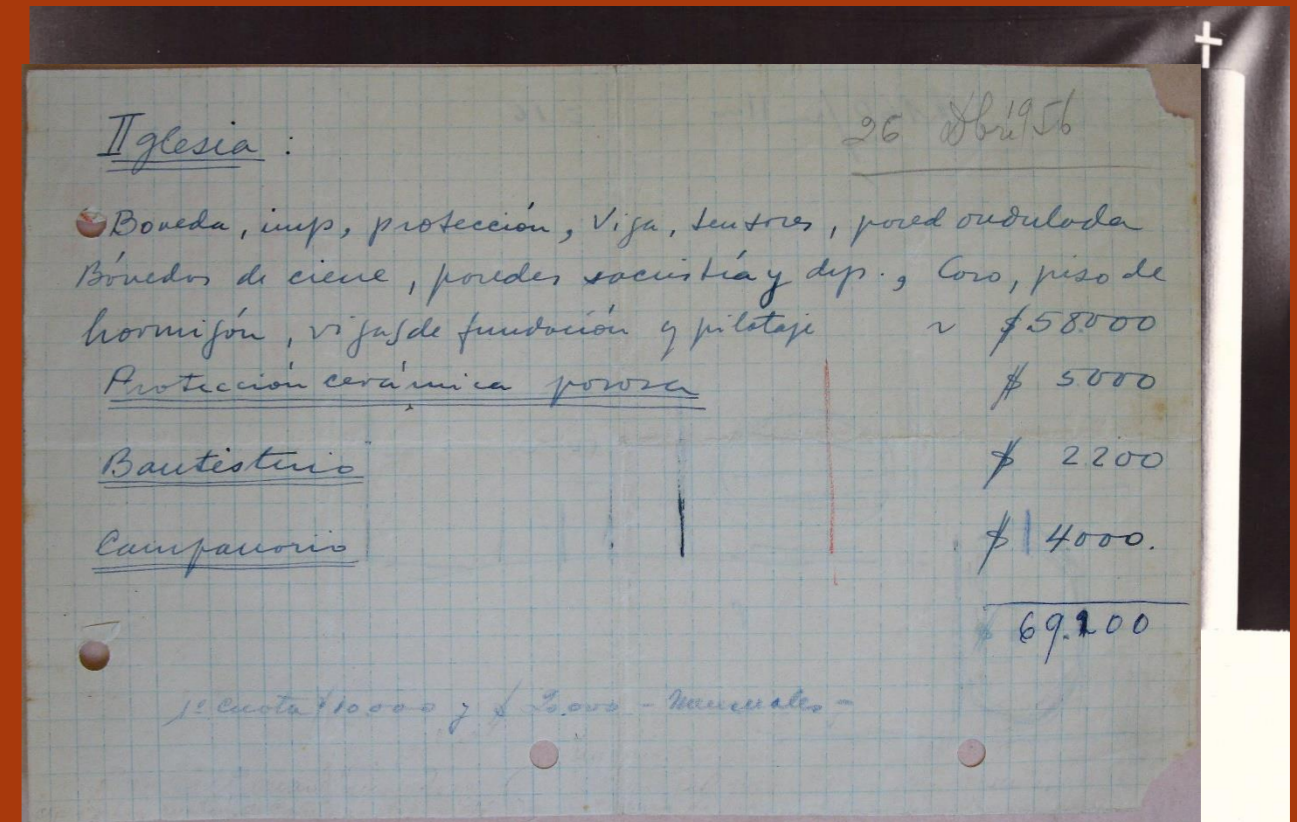 II Iglesia :
26 Abril 1956
Boveda, imp, protección, Viga, tensores, pared ondulada
Bóvedas de cierre, paredes sacristía y dep., Coro, piso de
hormigón, vigas de fundación y pilotaje ~ $58000
Protección cerámica porosa $ 5000
Bautisterio $ 2200
Campanario $ 4000.
69.200
1ª cuota $10.000 y $ 20.000 - Mensuales -